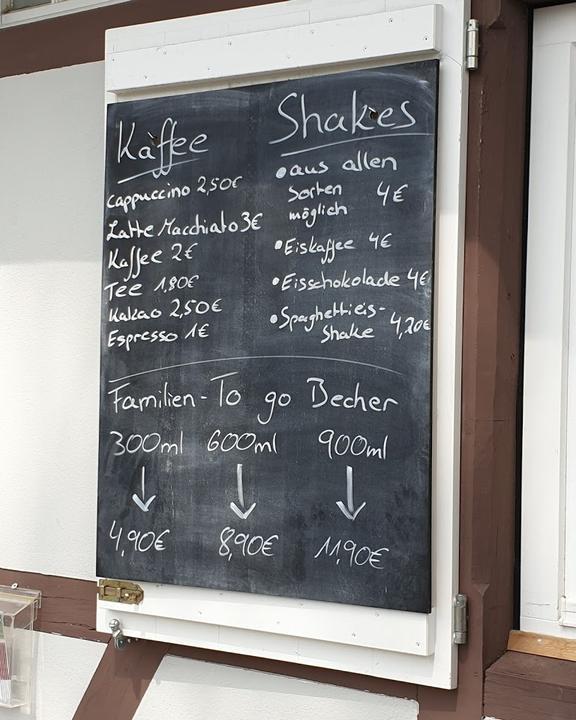 Kaffee
Cappuccino 2,50€
Latte Macchiato 3€
Kaffee 2€
Tee 1,80€
Kakao 2,50€
Espresso 1€
Shakes
• aus allen
Sorten 4€
möglich
• Eiskaffee 4€
• Eisschokolade 4€
• Spaghettieis-
Shake 4,20€
Familien-To go Becher
300ml 600ml 900ml
↓ ↓ ↓
4,90€ 8,90€ 11,90€